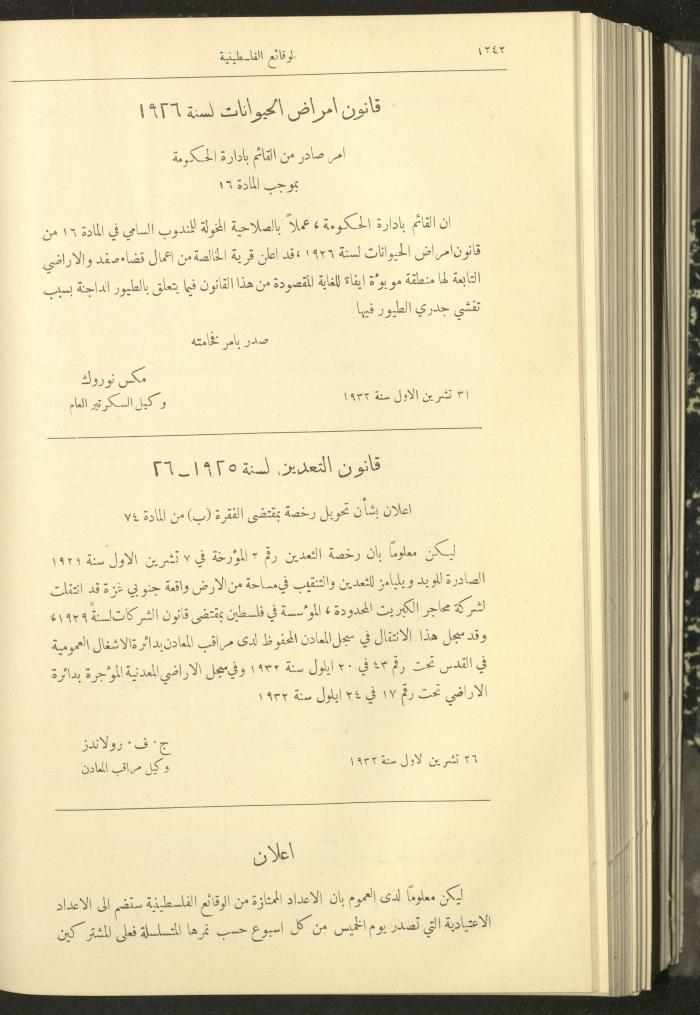 ١٢٤٢
لوقائع الفلسطينية
قانون امراض الحيوانات لسنة ١٩٢٦
امر صادر من القائم بادارة الحكومة
بموجب المادة ١٦
ان القائم بادارة الحكومة، عملاً بالصلاحية المخولة للمندوب السامي في المادة ١٦ من
قانون امراض الحيوانات لسنة ١٩٢٦، قد اعلن قرية الخالصة من اعمال قضاء صفد والاراضي
التابعة لها منطقة موبوءة ايفاءً للغاية المقصودة من هذا القانون فيما يتعلق بالطيور الداجنة بسبب
تفشي جدري الطيور فيها
صدر بامر فخامته
مكس نوروك
٣١ تشرين الاول سنة ١٩٣٢
وكيل السكرتير العام
قانون التعدين لسنة ١٩٢٥ـ٢٦
اعلان بشأن تحويل رخصة بمقتضى الفقرة (ب) من المادة ٧٤
ليكن معلوماً بان رخصة التعدين رقم ٣ المؤرخة في ٧ تشرين الاول سنة ١٩٢٩
الصادرة للويد ويليامز للتعدين والتنقيب في مساحة من الارض واقعة جنوبي غزة قد انتقلت
لشركة محاجر الكبريت المحدودة، المؤسسة في فلسطين بمقتضى قانون الشركات لسنة ١٩٢٩،
وقد سجل هذا الانتقال في سجل المعادن المحفوظ لدى مراقب المعادن بدائرة الاشغال العمومية
في القدس تحت رقم ٤٣ في ٢٠ ايلول سنة ١٩٣٢ وفي سجل الاراضي المعدنية المؤجرة بدائرة
الاراضي تحت رقم ١٧ في ٢٤ ايلول سنة ١٩٣٢
ج. ف. رولاندز
٢٦ تشرين لاول سنة ١٩٣٢
وكيل مراقب المعادن
اعلان
ليكن معلوماً لدى العموم بان الاعداد الممتازة من الوقائع الفلسطينية ستضم الى الاعداد
الاعتيادية التي تصدر يوم الخميس من كل اسبوع حسب نمرها المتسلسلة فعلى المشتركين